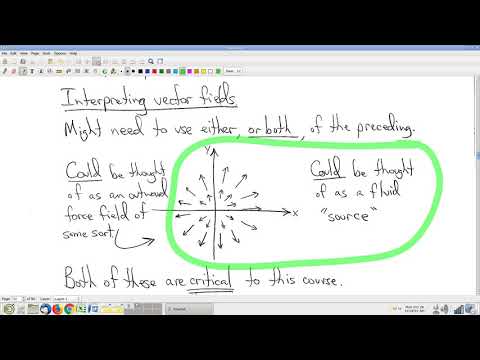 File Edit View
Interpreting vector fields
Might need to use either, or both, of the preceding.
Could be thought
of as an outward
force field of
some sort.
y
x
Could be thought
of as a fluid
"source"
Both of these are critical to this course.